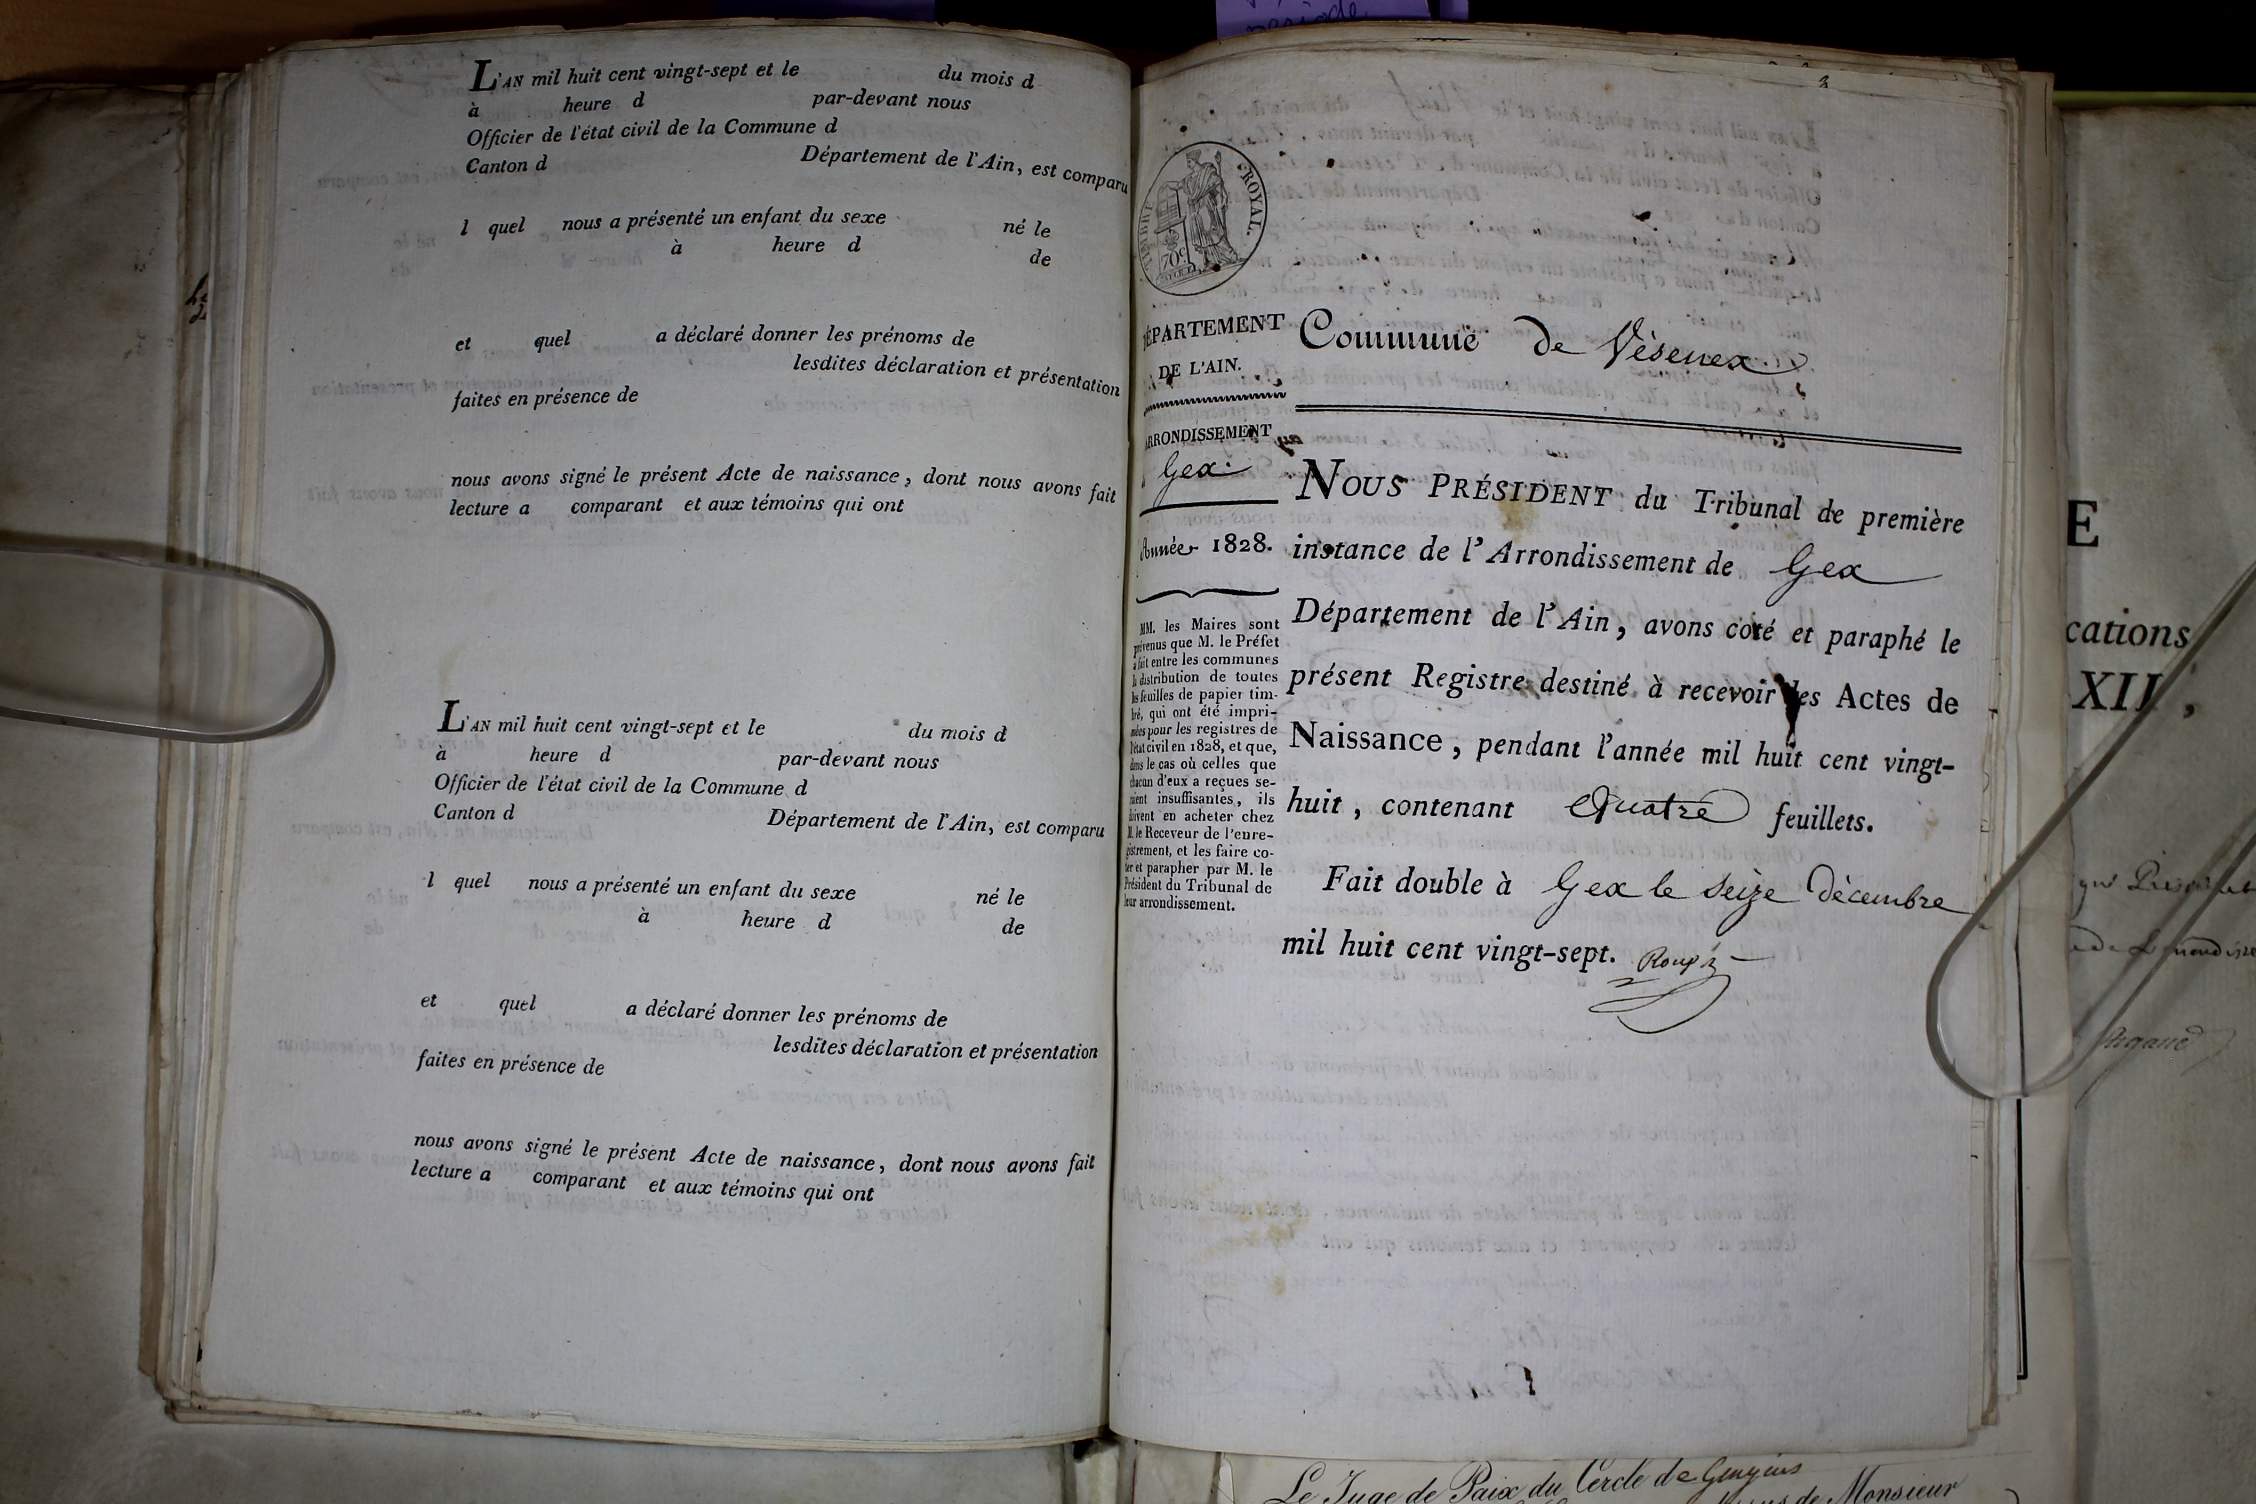 L'AN mil huit cent vingt-sept et le du mois d
à heure d par-devant nous
Officier de l'état civil de la Commune d
Canton d Département de l'Ain, est comparu
l quel nous a présenté un enfant du sexe né le
à heure d de
et quel a déclaré donner les prénoms de
lesdites déclaration et présentation
faites en présence de
nous avons signé le présent Acte de naissance, dont nous avons fait
lecture a comparant et aux témoins qui ont
L'AN mil huit cent vingt-sept et le du mois d
à heure d par-devant nous
Officier de l'état civil de la Commune d
Canton d Département de l'Ain, est comparu
l quel nous a présenté un enfant du sexe né le
à heure d de
et quel a déclaré donner les prénoms de
lesdites déclaration et présentation
faites en présence de
nous avons signé le présent Acte de naissance, dont nous avons fait
lecture a comparant et aux témoins qui ont
TIMBRE ROYAL.
70c.
DÉPARTEMENT
DE L'AIN.
ARRONDISSEMENT
Gex.
Année 1828.
MM. les Maires sont
prévenus que M. le Préfet
a fait entre les communes
la distribution de toutes
les feuilles de papier tim-
bré, qui ont été impri-
mées pour les registres de
l'état civil en 1828, et que,
dans le cas où celles que
chacun d'eux a reçues se-
raient insuffisantes, ils
doivent en acheter chez
M. le Receveur de l'enre-
gistrement, et les faire co-
ter et parapher par M. le
Président du Tribunal de
leur arrondissement.
Commune de Vésenex
NOUS PRÉSIDENT du Tribunal de première
instance de l'Arrondissement de Gex
Département de l'Ain, avons coté et paraphé le
présent Registre destiné à recevoir les Actes de
Naissance, pendant l'année mil huit cent vingt-
huit, contenant Quatre feuillets.
Fait double à Gex le seize décembre
mil huit cent vingt-sept.
E
cations
XII,
Le Juge de Paix du Cercle de Gingins
de Monsieur